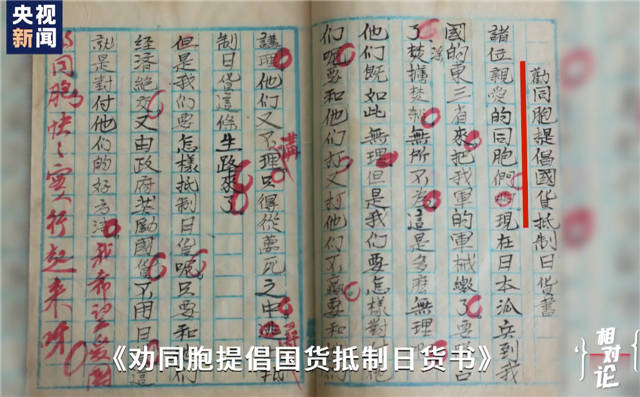 央视新闻
勸同胞提倡國貨抵制日貨書
諸位親愛的同胞們現在日本派兵到我
國的東三省來把我軍的軍械繳了要
了焚擄焚殺無所不為這是多麼無理
他們既如此無理但是我們要怎樣對付
們呢要和他們打又打他們不
講理他們又不理只得從萬死之中
制日貨這條生路來了
但是我們要怎樣抵制日貨呢只要和
經濟絕交又由政府獎勵國貨不用日
就是對付他們的好方法我希望
同胞快々實行起来呀
《劝同胞提倡国货抵制日货书》
相对论